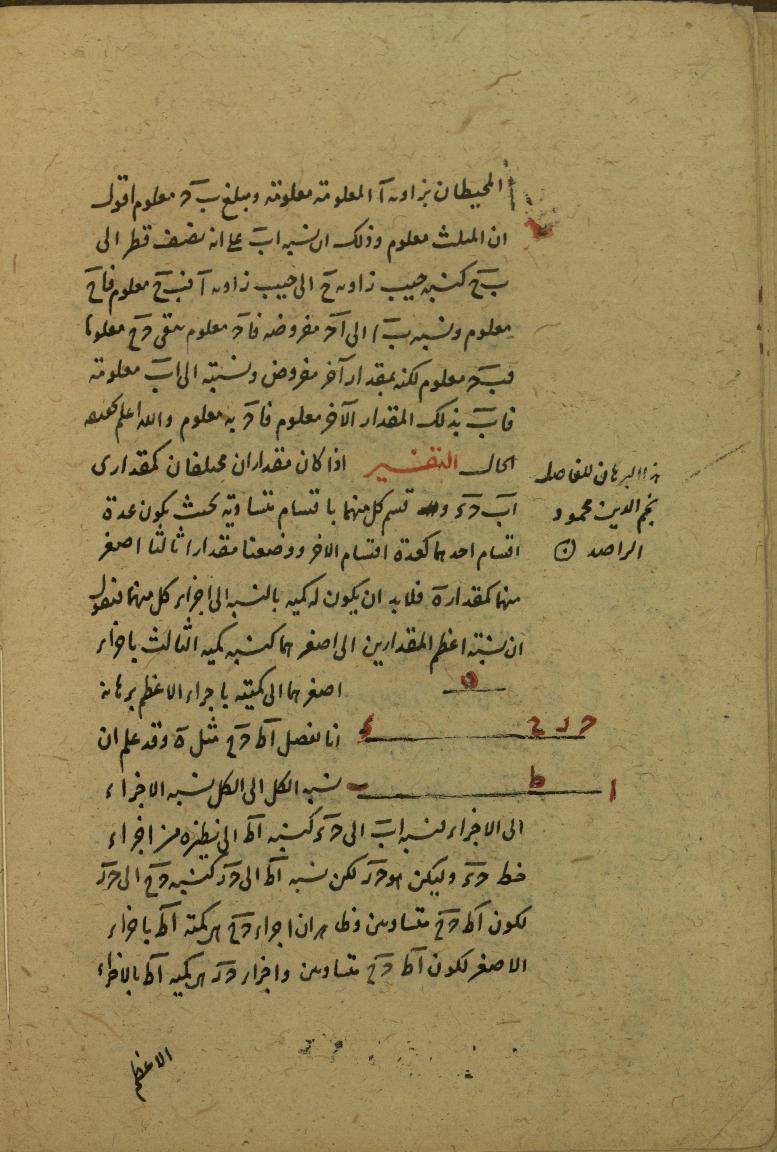 المحيطان بزاوية آ المعلومة معلومة ومبلغ ب د معلوم اقول
ان المثلث معلوم وذلك ان نسبة اب على انه نصف قطر الى
ب ح كنسبة جيب زاوية ح الى جيب زاوية آ فب ح معلوم فا ح
معلوم ونسبة ب ا الى ا د مفروضة فا د معلوم يبقى د ح معلوما
فب د معلوم لكنه بمقدار آخر مفروض ونسبته الى اب معلومة
فاب بذلك المقدار الآخر معلوم فا د به معلوم والله اعلم بحقيقة
الحال التفسير اذا كان مقداران مختلفان كمقدارى
هذا البرهان للفاضل
نجم الدين محمود
الراصد
اب دء و قسم كل منهما باقسام متساوية بحيث يكون عدة
اقسام احدهما كعدة اقسام الاخر ووضعنا مقدارا ثالثا اصغر
منهما كمقدار ه فلا بد ان يكون له كمية بالنسبة الى اجزاء كل منهما فنقول
ان نسبة اعظم المقدارين الى اصغرهما كنسبة كمية الثالث باجزاء
اصغرهما الى كميته باجزاء الاعظم برهانه
ه
انا نفصل اط د ح مثل ه وقد علم ان
ء ح ر د
نسبة الكل الى الكل نسبة الاجزاء
ب ط ا
الى الاجزاء فنسبة اب الى دء كنسبة اط الى نظيره من اجزاء
خط دء وليكن هو در لكن نسبة اط الى در كنسبة د ح الى در
لكون اط د ح متساويين وظاهر ان اجزاء د ح هى كمية اط باجزاء
الاصغر لكون اط د ح متساويين واجزاء در هى كمية اط بالاجزاء
الاعظم